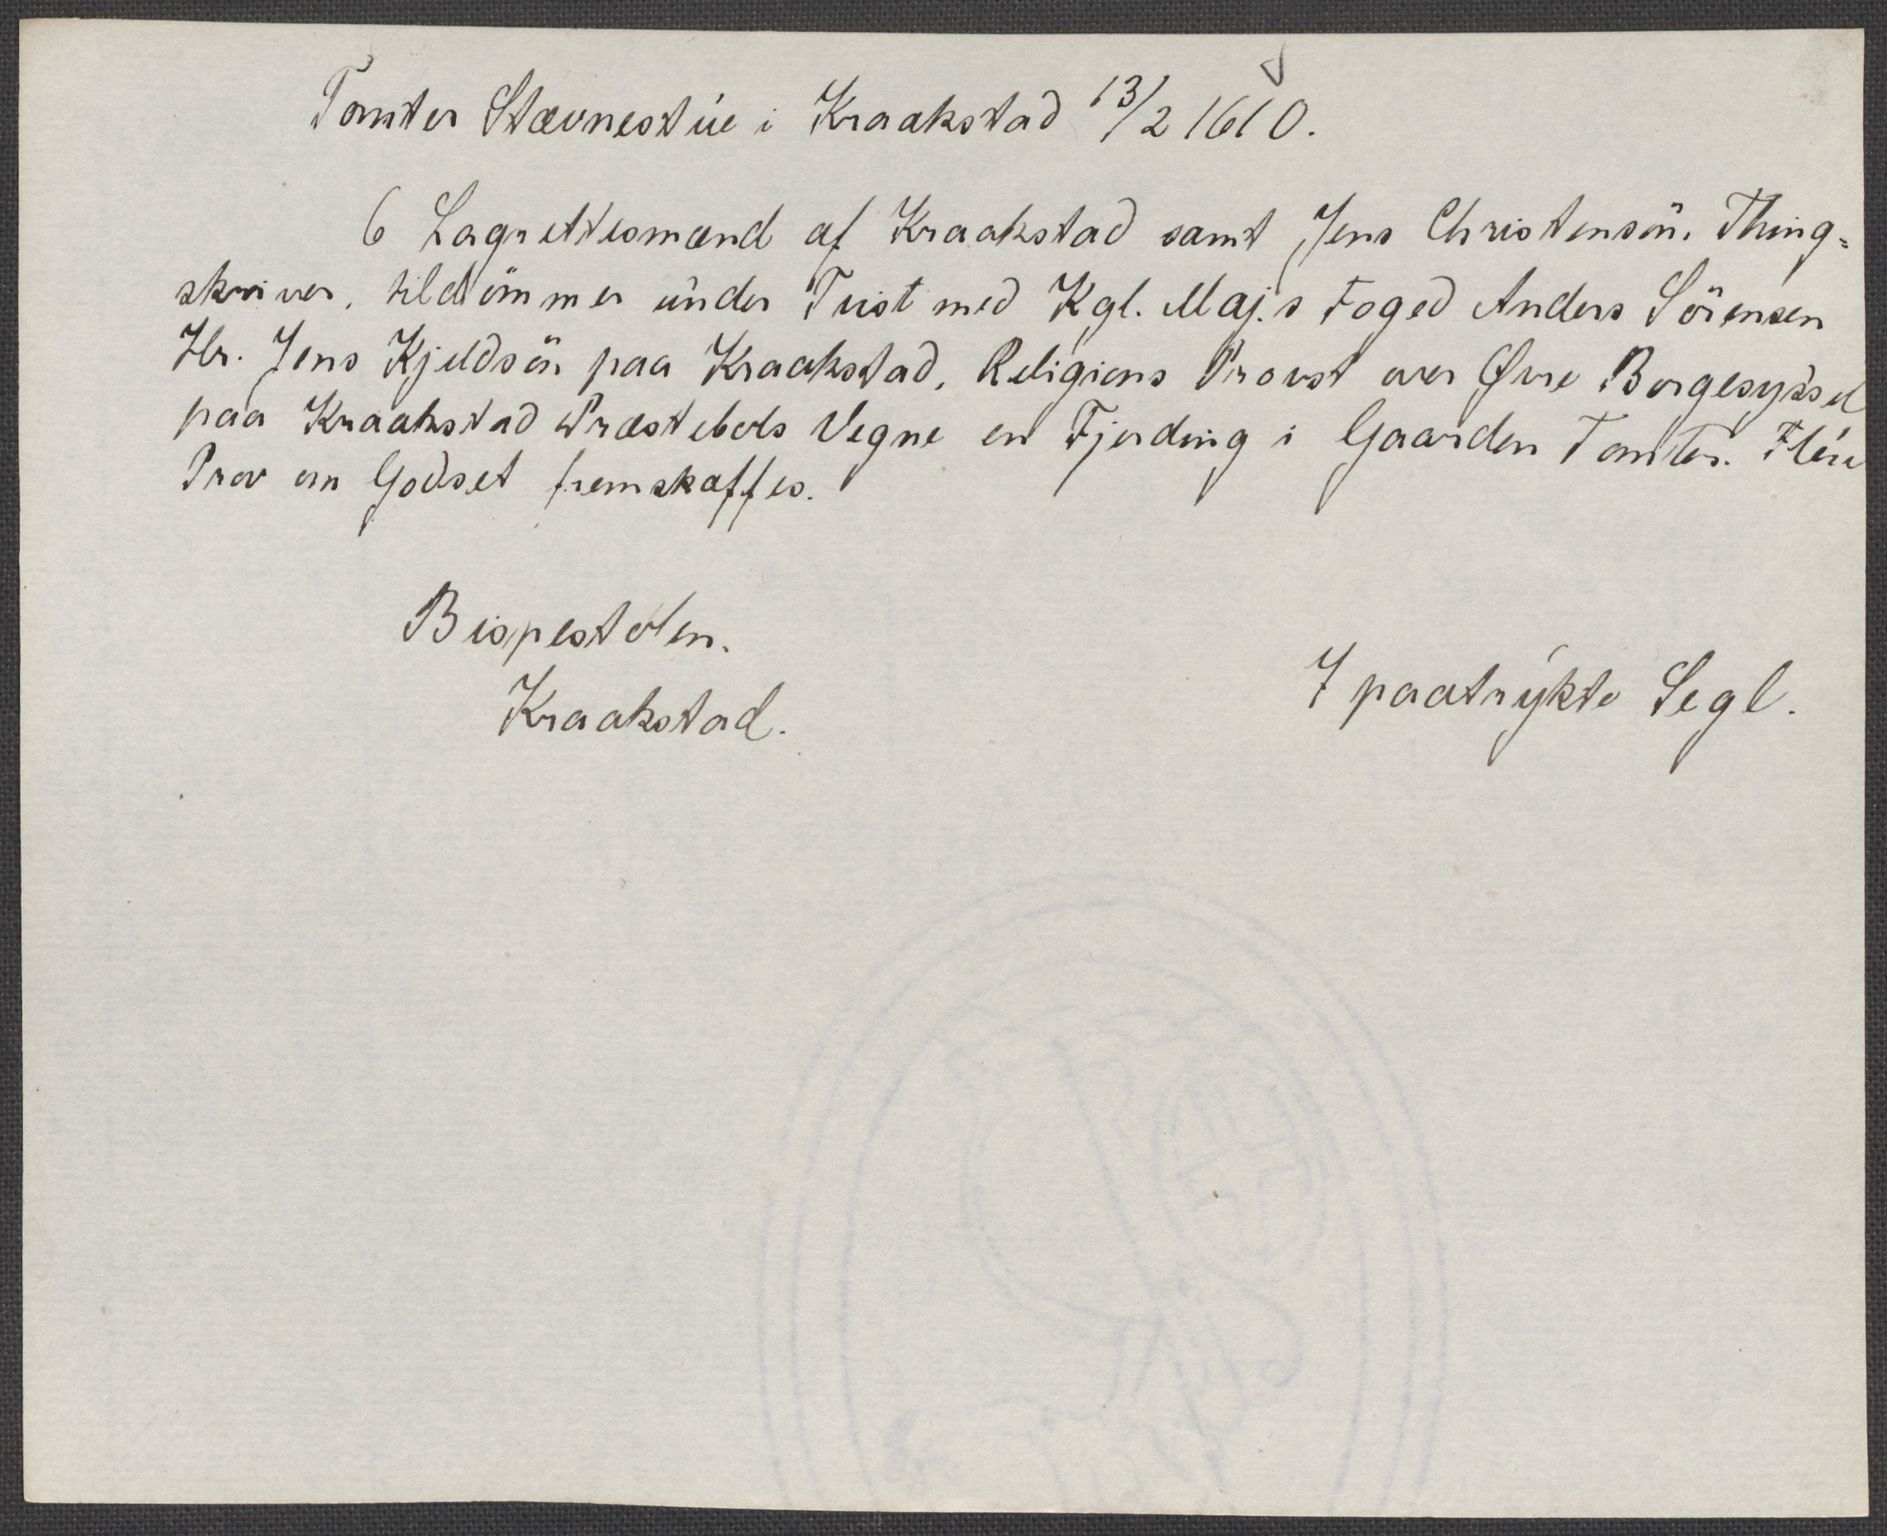 Tomter Stævnestúe i Kraakstad 13/2 1610.
6 Lagrettesmænd af Kraakstad samt Jens Christensön, Thing=
skriver, tildömmer únder Tvist med Kgl. Maj.s Foged Anders Sörensen
Hr. Jens Kjeldsön paa Kraakstad, Religions Provst over Øvre Borgesyssel
paa Kraakstad Præstebols Vegne en Fjerding i Gaarden Tomter. Flére
Prov om Godset fremskaffes.
Bispestolen.
Kraakstad.
7 paatrykte Segl.